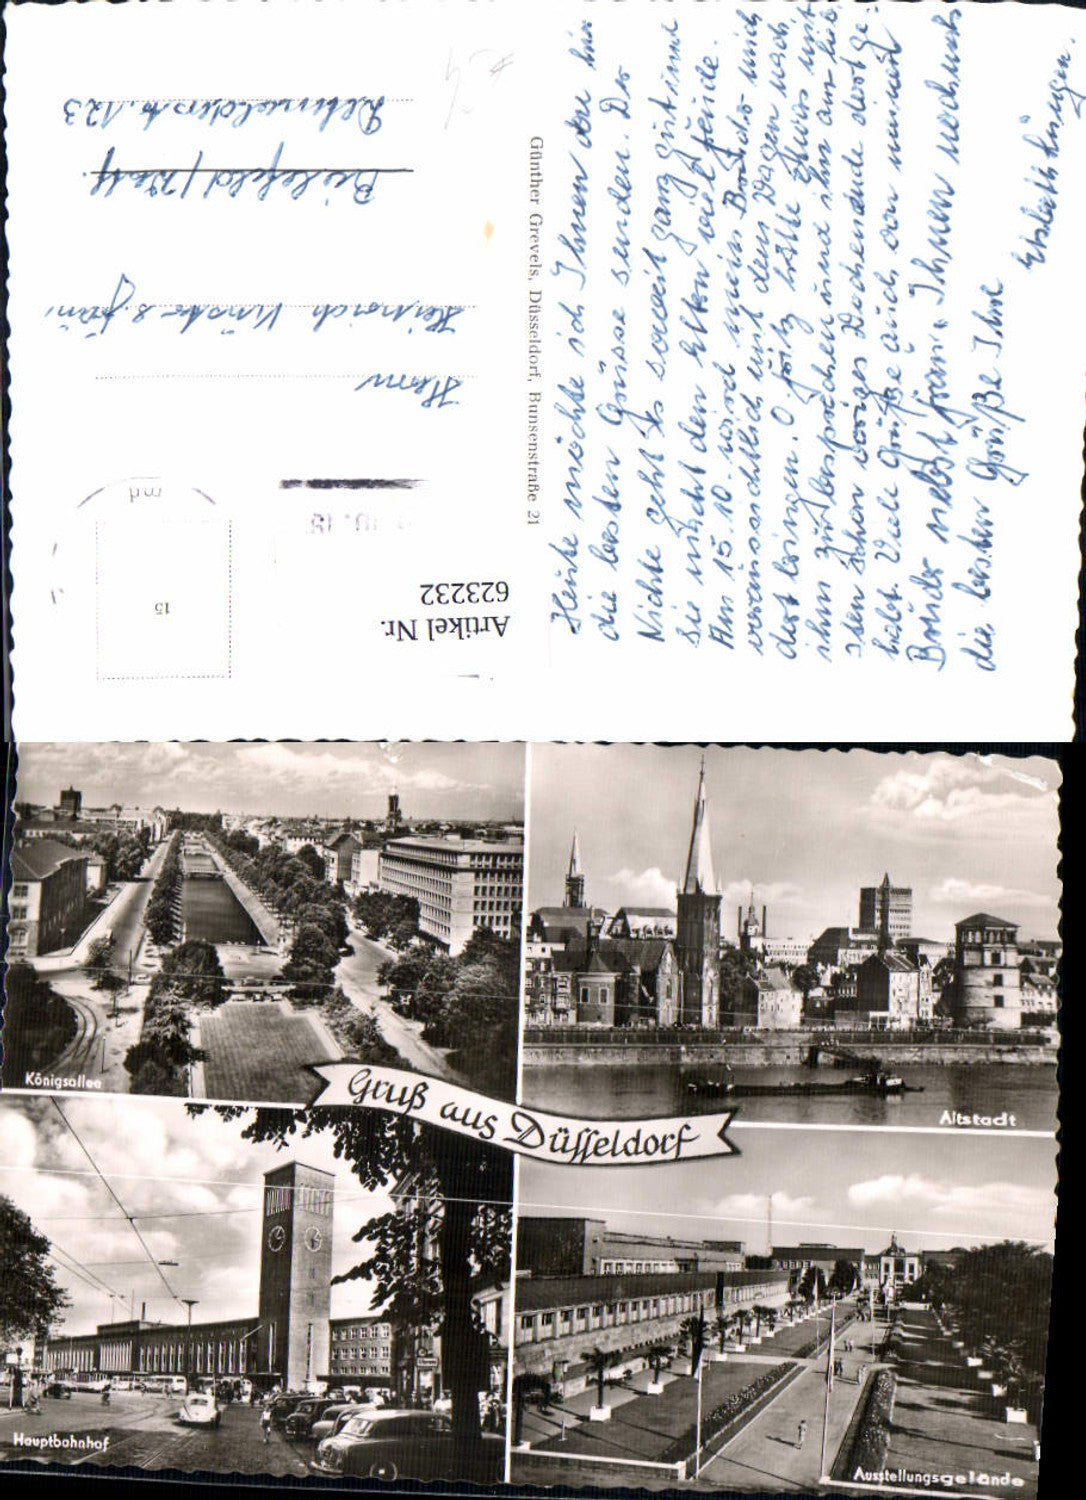 Heute möchte ich Ihnen von hier
die besten Grüsse senden. Der
Nichte geht es soweit ganz gut und
sie macht den Eltern viel Freude.
Am 15.10. wird mein Bruder mich
voraussichtlich mit dem Wagen nach
dort bringen. O. Fritz hätte etwas mit
ihm zu besprechen und ihm am lieb
sten schon voriges Wochenende dort ge-
habt. Viele Grüße auch von meinem
Bruder nebst Frau. Ihnen nochmals
die besten Grüße Ihre
Günther Grevels, Düsseldorf, Bunsenstraße 21
Artikel Nr.
623232
15
Herrn
Heinrich
Bielefeld / Westf.
Detmolderstr. 123
Königsallee
Altstadt
Gruß aus Düsseldorf
Hauptbahnhof
Ausstellungsgelände